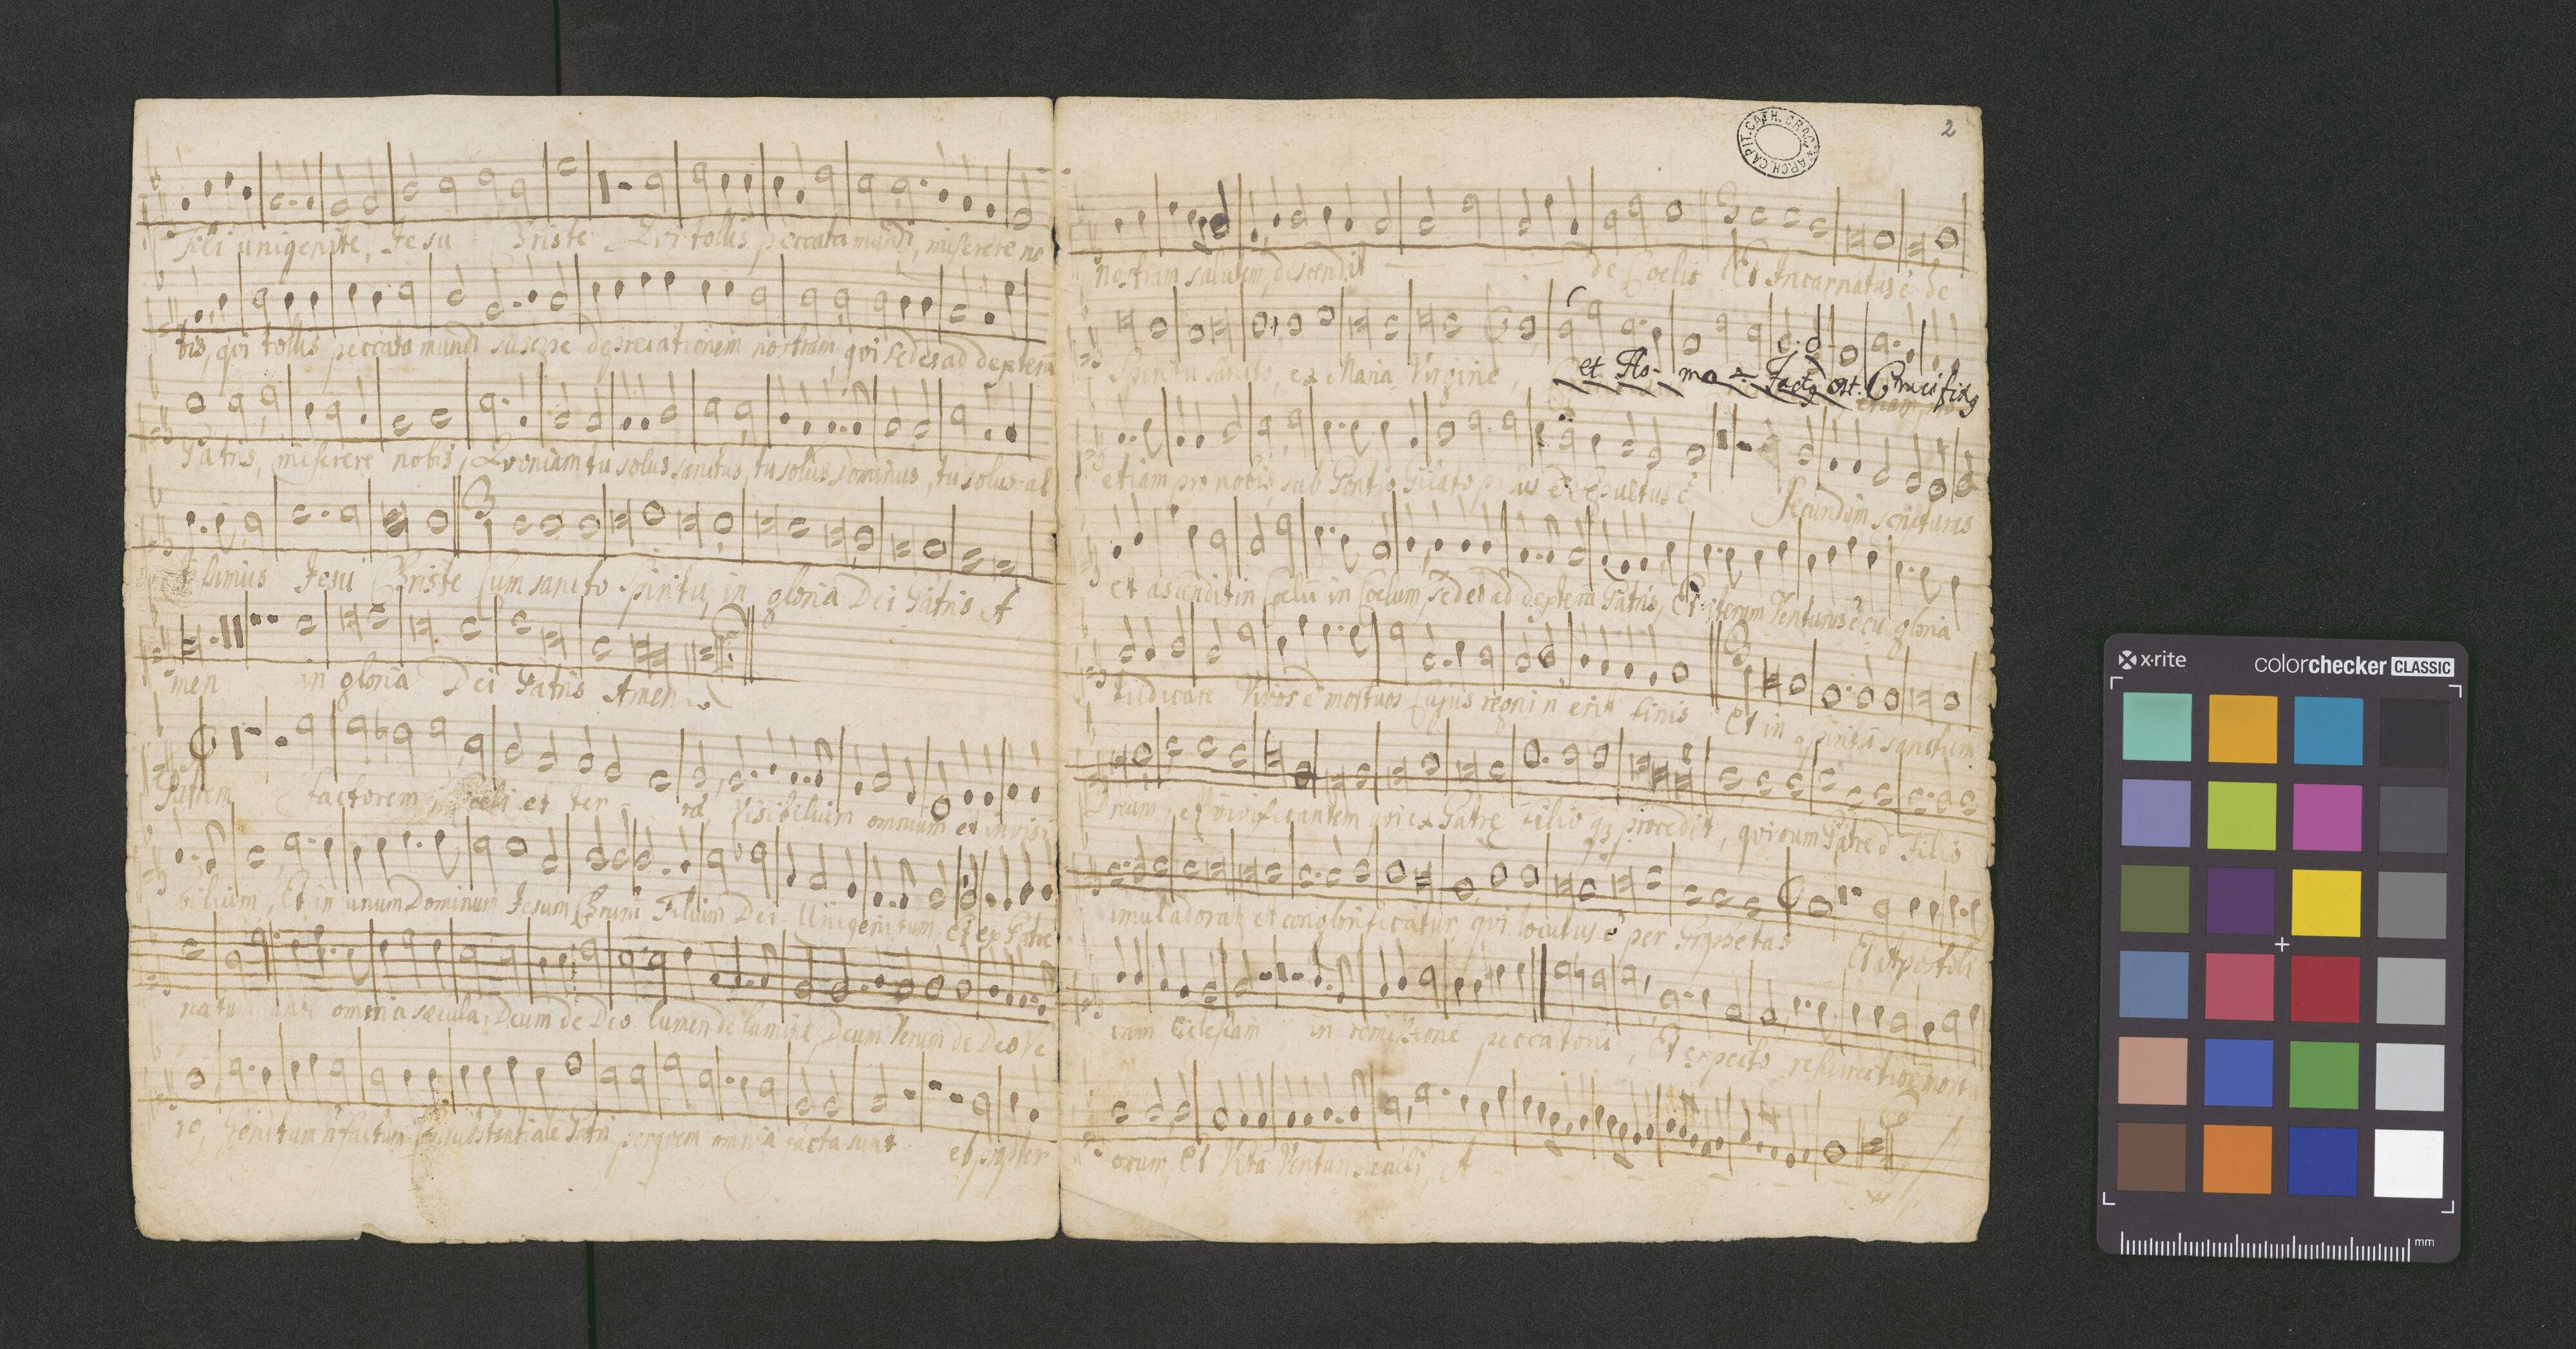 Fili unigenite, Jesu Christe Qui tollis peccata mundi, miserere no
bis, qui tollis peccata mundi suscipe deprecationem nostram, qui sedes ad dexteram
Patris, miserere nobis, Quoniam tu solus sanctus, tu solus Dominus, tu solus al
tissimus Jesu Christe Cum sancto Spiritu, in gloria Dei Patris A
men in gloria Dei Patris Amen
Patrem factorem coeli et ter ræ Visibilium omnium et invisi
bilium, Et in unum Dominum Jesum Filium Dei Unigenitum, et ex Patre
natum ante omnia sæcula, Deum de Deo lumen de lumine, Deum Verum de Deo Ve
ro, Genitum factum Patri, per quem omnia facta sunt
2
ARCH. CAPIT. CATH. CRAC.
nostram salutem, descendit de Coelis Et Incarnatus ē de
Spiritu Sancto, ex Maria Virgine, et Ho- mo Factq est. Crucifixq
etiam pro nobis, sub Pontio Pilato sepultus ē Secundum scripturas
et ascendit in Coelū in Coelum, sedet ad dexterā Patris, Et iterum Venturus ē cū gloria
Iudicare Vivos mortuos Cujus regni erit finis Et in Spiritū sanctum
Dnum, et vivificantem qui ex Patre Filio qz procedit, qui cum Patre Filio
simul adorat et conglorificatur, qui locutus ē per Prophetas Et Apostoli
cam Eclesiam in remissione peccatorū, Et expecto resurectionē mortu
orum, Et Vitā Venturi sæculi, A
x-rite
colorchecker CLASSIC
mm